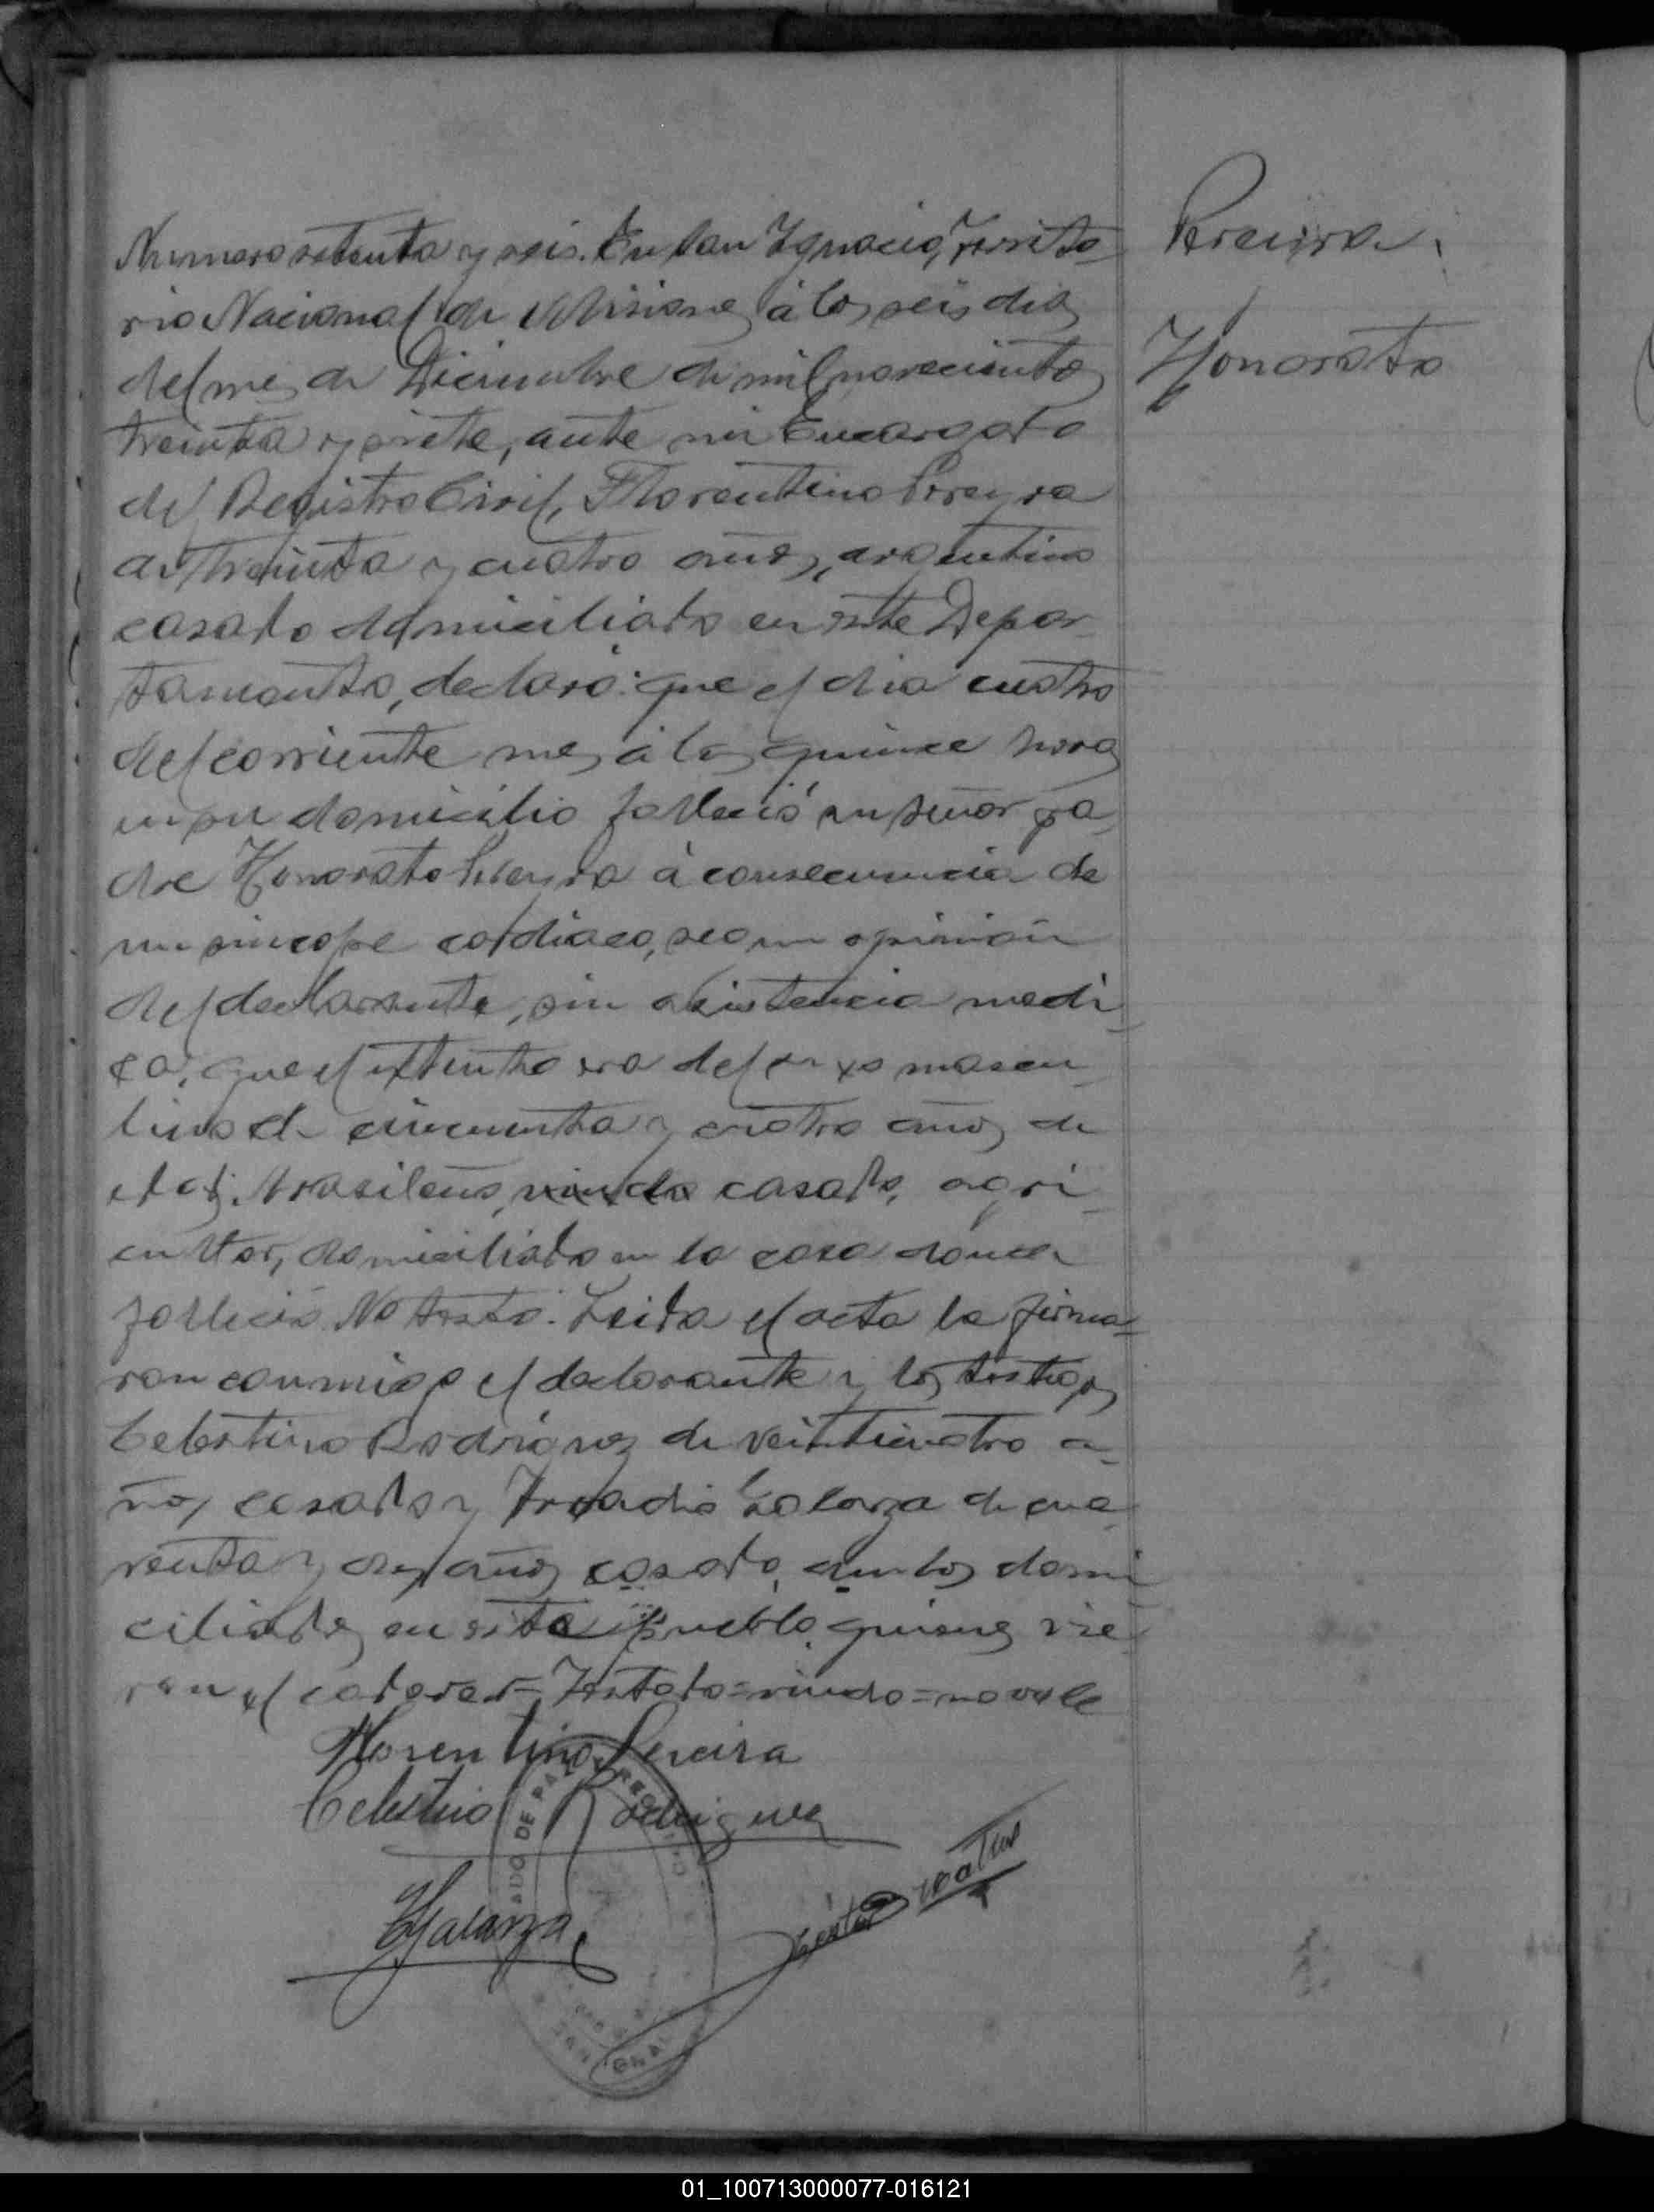 Numero setenta y seis. En San Ignacio, Territo-
rio Nacional de Misiones á los seis dias
del mes de Diciembre de mil novecientos
treinta y siete, ante mi Encargado
del Registro Civil, Florentino Pereyra
de treinta y cuatro años, argentino
casado domiciliado en este Depar-
tamento, declaró: que el dia cuatro
del corriente mes á las quince horas
en su domicilio falleció su señor pa-
dre Honorato Pereyra á consecuencia de
un sincope cardiaco, segun opinión
del declarante, sin asistencia medi-
ca, que el extinto era del sexo mascu-
lino de cincuenta y cuatro años de
edad, brasileño, viudo casado, agri-
cultor, domiciliado en la casa donde
falleció. No testó. Leida el acta la firma-
ron conmigo el declarante y los testigos
Celestino Rodriguez de veinticuatro a-
ños casado y Galarza de cua-
renta y años casado, ambos domi-
ciliados en este pueblo quienes vie-
ron el cadaver = Testado = viudo = no vale
Florentino Pereira
Celestino Rodriguez
Galarza
Pereira
Honorato
JUZGADO DE PAZ
SAN IGNACIO
01_100713000077-016121